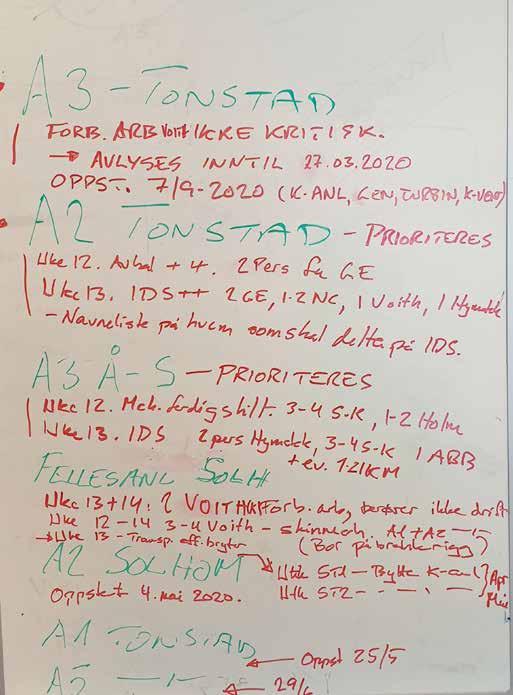 A3 - TONSTAD
FORB. ARB Voith IKKE KRITISK.
→ AVLYSES INNTIL 27.03.2020
OPPST. 7/9-2020 (K-ANL, GEN, TURBIN, K-VENT)
A2 TONSTAD - PRIORITERES
Uke 12. Avbal + 4. 2 Pers fra GE
Uke 13. IDS++ 2 GE, 1-2 NC, 1 Voith, 1 Hymatek
- Navneliste på hvem som skal delta på IDS.
A3 Å-S - PRIORITERES
Uke 12. Mek. ferdigstilt. 3-4 S-K, 1-2 Holm
Uke 13. IDS 2 pers Hymatek, 3-4 S-K 1 ABB
+ ev. 1-2 KM
FELLESANL SOLH
Uke 13+14: 2 VOITH Forb. arb, berører ikke drift
Uke 12-14 3-4 Voith - A1+A2 -"-
→ Uke 13 - Transp. eff.bryter (Bor på brakkerigg)
A2 SOLHOM
Utk ST1 - Bytte K-anl } Apr
Oppstart 4. mai 2020.
Utk ST2 - - " - - } Mai
A1 TONSTAD
← Oppst 25/5
A5 - " -
← 29/6